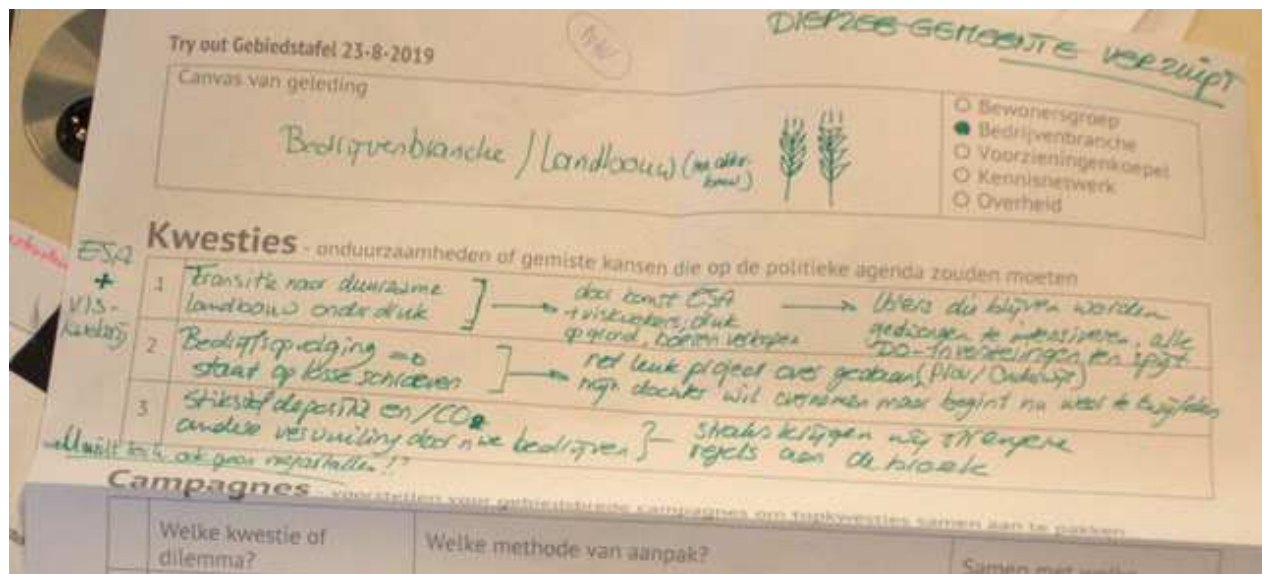 DIEPZEE-GEMEENTE VERZUIPT
Try out Gebiedstafel 23-8-2019
Canvas van geleding
Bedrijvenbranche / Landbouw
Bewonersgroep
Bedrijvenbranche
Voorzieningenkoepel
Kennisnetwerk
Overheid
Kwesties - onduurzaamheden of gemiste kansen die op de politieke agenda zouden moeten
ESA
+
VIS-
kwekerij
1 Transitie naar duurzame
landbouw onder druk
door komst ESA
+ viskwekers, druk
op grond, boeren verkopen
Boers die blijven worden
gedwongen te intensiveren, alle
DO-Investeringen ten spijt
2 Bedrijfsopvolging
staat op losse schroeven
net leuk project over gedaan (Plou / Onderwijs)
mijn dochter wil overnemen maar begint nu weer te twijfelen
3 Stikstof depositie en / CO2
andere vervuiling door nwe bedrijven
straks krijgen wij strengere
regels aan de broek
U wilt toch ook geen megastallen!?
Campagnes - voorstellen voor gebiedsbrede campagnes om topkwesties samen aan te pakken
Welke kwestie of
dilemma?
Welke methode van aanpak?
Samen met welke